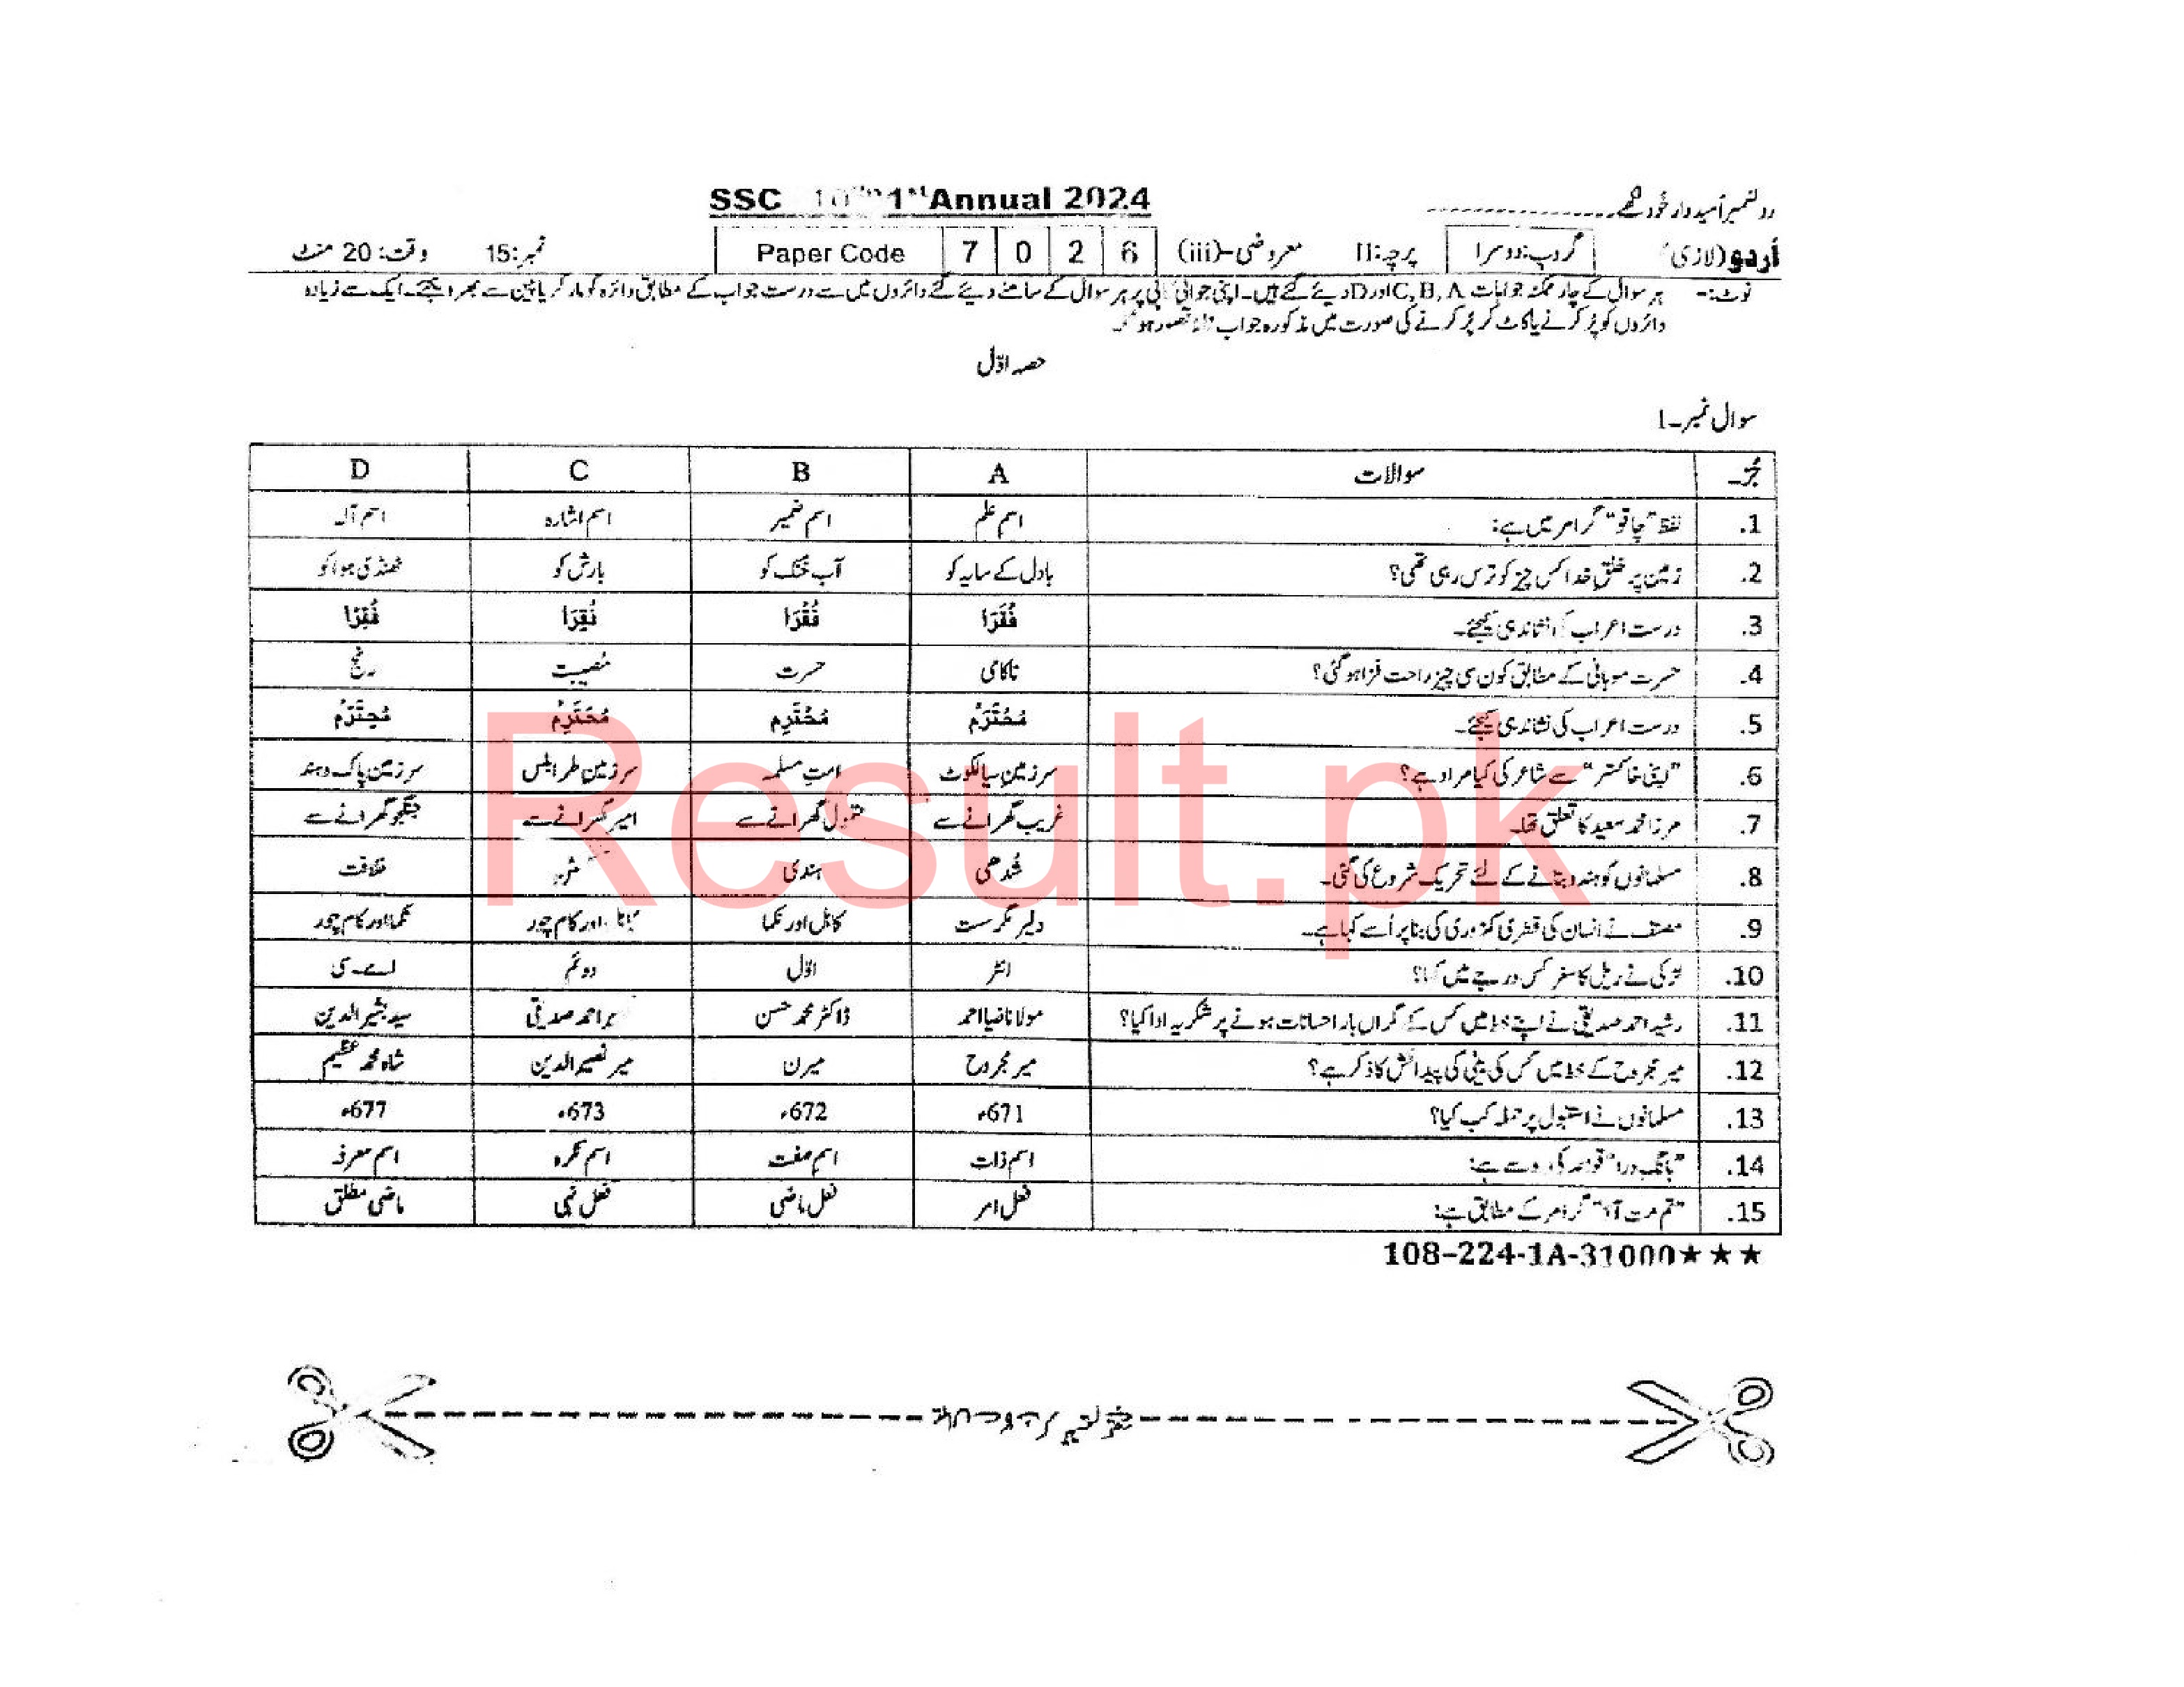 رولنمبر اُمیدوار خود لکھے۔ SSC 10th 1st Annual 2024
اُردو (لازمی) گروپ: دوسرا پرچہ: II معروضی-(iii) Paper Code 7 0 2 6 نمبر: 15 وقت: 20 منٹ
نوٹ:- ہر سوال کے چار ممکنہ جوابات C, B, A اور D دیئے گئے ہیں۔ اپنی جوابی کاپی پر ہر سوال کے سامنے دیئے گئے دائروں میں سے درست جواب کے مطابق دائرہ کو مارکر یا پین سے بھر دیجئے۔ ایک سے زیادہ
دائروں کو پُر کرنے یا کاٹ کر پُر کرنے کی صورت میں مذکورہ جواب غلط تصور ہو گا
حصہ اوّل
سوال نمبر۔1
جُز۔ سوالات A B C D
1. لفظ "چاقو" گرامر میں ہے: اسم علم اسم ضمیر اسم اشارہ اسم آلہ
2. زمین پر خلقِ خدا کس چیز کو ترس رہی تھی؟ بادل کے سایہ کو آب خنک کو بارش کو ٹھنڈی ہوا کو
3. درست اعراب کی نشاندہی کیجئے۔ فُقَرَا فُقْرَا فُقِرَا
4. حسرت موہانی کے مطابق کون سی چیز راحت فزا ہو گئی؟ ناکامی حسرت مصیبت رنج
5. درست اعراب کی نشاندہی کیجئے۔ مُحْتَرَم مُحْتَرِم
6. "اپنی خاکستر" سے شاعر کی کیا مراد ہے؟ سرزمین سیالکوٹ امتِ مسلمہ سرزمین طرابلس سرزمین پاک و ہند
7. مرزا محمد سعید کا تعلق تھا۔ غریب گھرانے سے متمول گھرانے سے امیر گھرانے سے جنگجو گھرانے سے
8. مسلمانوں کو ہندو بنانے کے لئے تحریک شروع کی گئی۔ شُدھی ہندی خلافت
9. مصنف نے انسان کی فطری کمزوری کی بنا پر اُسے کہا ہے۔ کاہل اور نکما اور کام چور نکما اور کام چور
10. لڑکی نے ریل کا سفر کس درجے میں کیا؟ انٹر اوّل دوئم اے۔سی
11. رشید احمد صدیقی نے اپنے خط میں کس کے گراں بار احسانات ہونے پر شکریہ ادا کیا؟ مولانا ضیا احمد ڈاکٹر محمد حسن احمد صدیقی سید بشیر الدین
12. میر مجروح کے خط میں کس کی بیٹی کی پیدائش کا ذکر ہے؟ میر مجروح میرن میر نصیر الدین شاہ محمد عظیم
13. مسلمانوں نے استنبول پر حملہ کب کیا؟ 671ء 672ء 673ء 677ء
14. "بانگِ درا" قواعد کی رو سے ہے: اسم ذات اسم صفت اسم نکرہ اسم معرفہ
15. "تم مت آنا" گرامر کے مطابق ہے: فعل امر فعل ماضی فعل نہی ماضی مطلق
108-224-1A-31000★★★
Result.pk